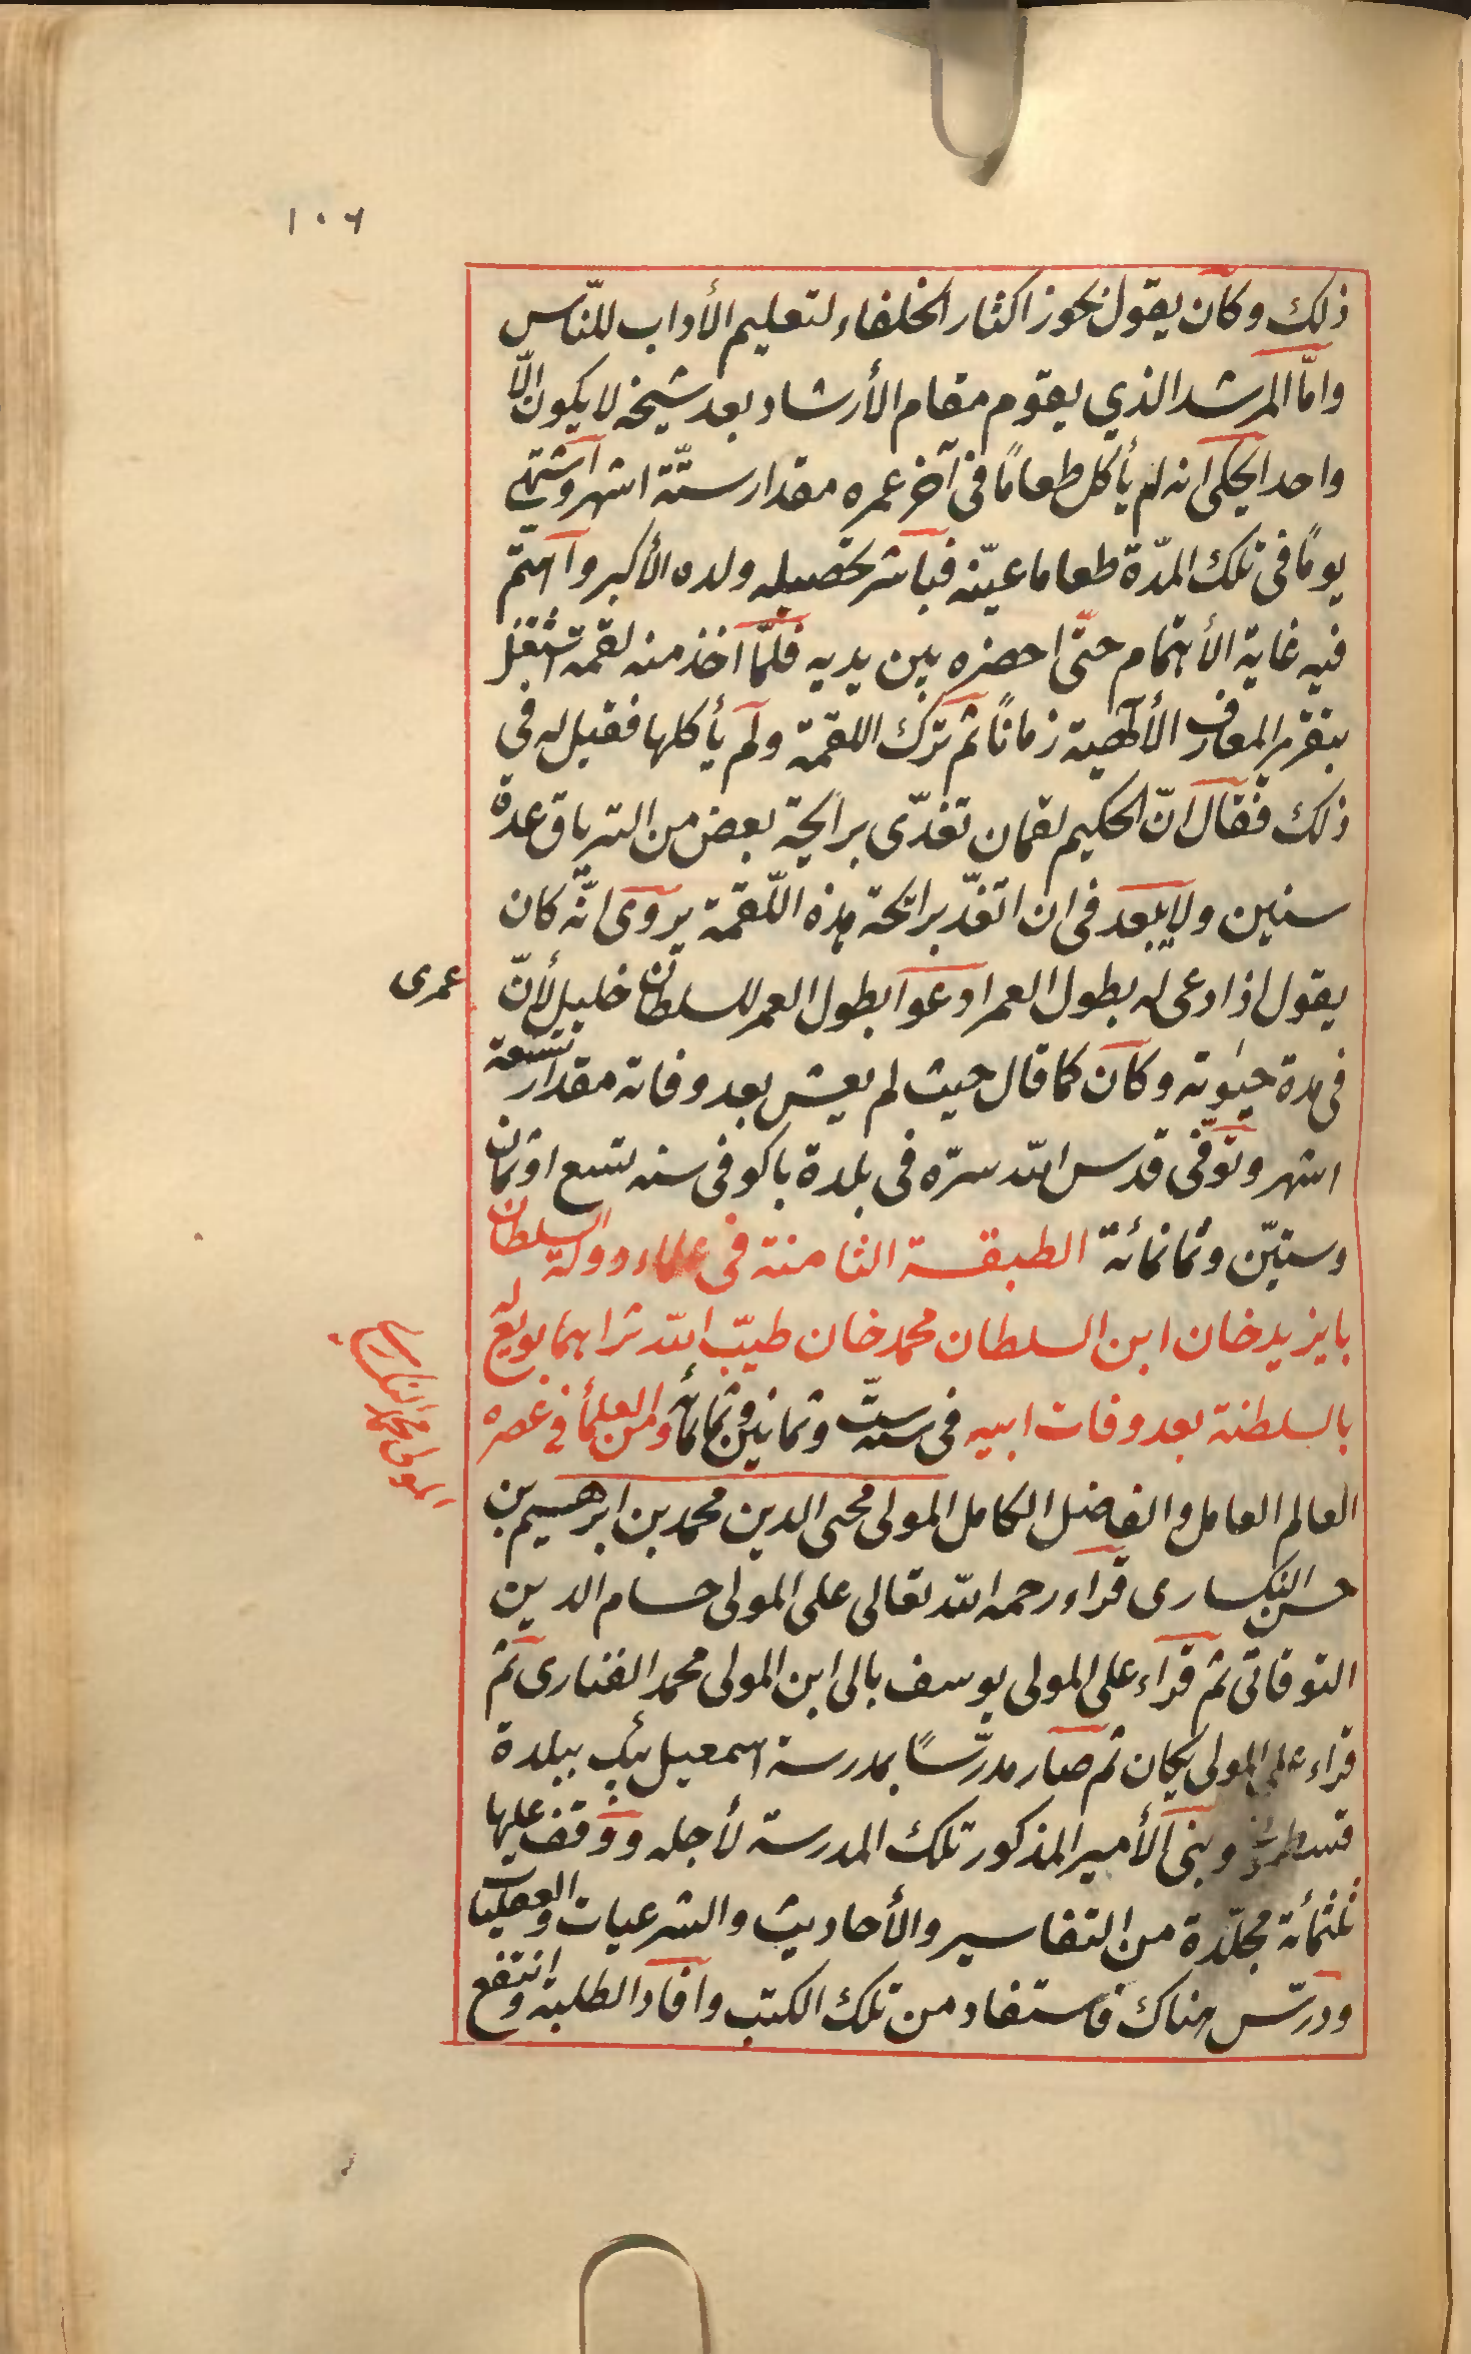 ١٠٦
ذلك وكان يقول يجوز اكثار الخلفاء لتعليم الأداب للنّاس
وامّا المرشد الذي يقوم مقام الأرشاد بعد شيخه لا يكون الّا
واحدا يحكى انه لم يأكل طعامًا فى آخر عمره مقدار ستّة اشهر واشتهى
يومًا فى تلك المدّة طعاما عيّنه فباشر تحصيله ولده الأكبر واهتمّ
فيه غاية الأهتمام حتّى احضره بين يديه فلمّا اخذ منه لقمة اشتغل
بتقرير المعارف الألهية زمانًا ثم ترك اللقمة ولم يأكلها فقيل له في
ذلك فقال انّ الحكيم لقمان تغدّى برايحة بعض من الترياق عدة
سنين ولا يبعد فى ان اتغدّ برائحة هذه اللّقمة يروى انّه كان
يقول اذا دعى له بطول العمر ادعوا بطول العمر للسلطان خليل لأنّ
عمرى
فى مدة حيوته وكان كما قال حيث لم يعش بعد وفاته مقدار تسعة
اشهر وتوفّى قدس الله سرّه فى بلدة باكو فى سنه تسع او ثمان
وستيّن وثمانمائة الطبقة الثامنة فى علماء دولة السلطان
بايزيد خان ابن السلطان محمد خان طيّب الله ثراهما بويع له
بالسلطنة بعد وفات ابيه فى سنه ستّ وثمانين وثمانمائه ومن العلمأ في عصره
العالم العامل والفاضل الكامل المولى محيى الدين محمد بن ابرهيم بن
حسن النكسارى قراء رحمه الله تعالى على المولى حسام الدين
التوقاتى ثم قراء على المولى يوسف بالى ابن المولى محمد الفنارى ثم
قراء على المولى يكان ثم صار مدرّسًا بمدرسة اسمعيل بيك ببلدة
قسطمونى وبنى الأمير المذكور تلك المدرسة لأجله ووقف عليها
ثلثمائة مجلّدة من التفاسير والأحاديث والشرعيات والعقليات
ودرّس هناك فاستفاد من تلك الكتب وافاد الطلبة وانتفع